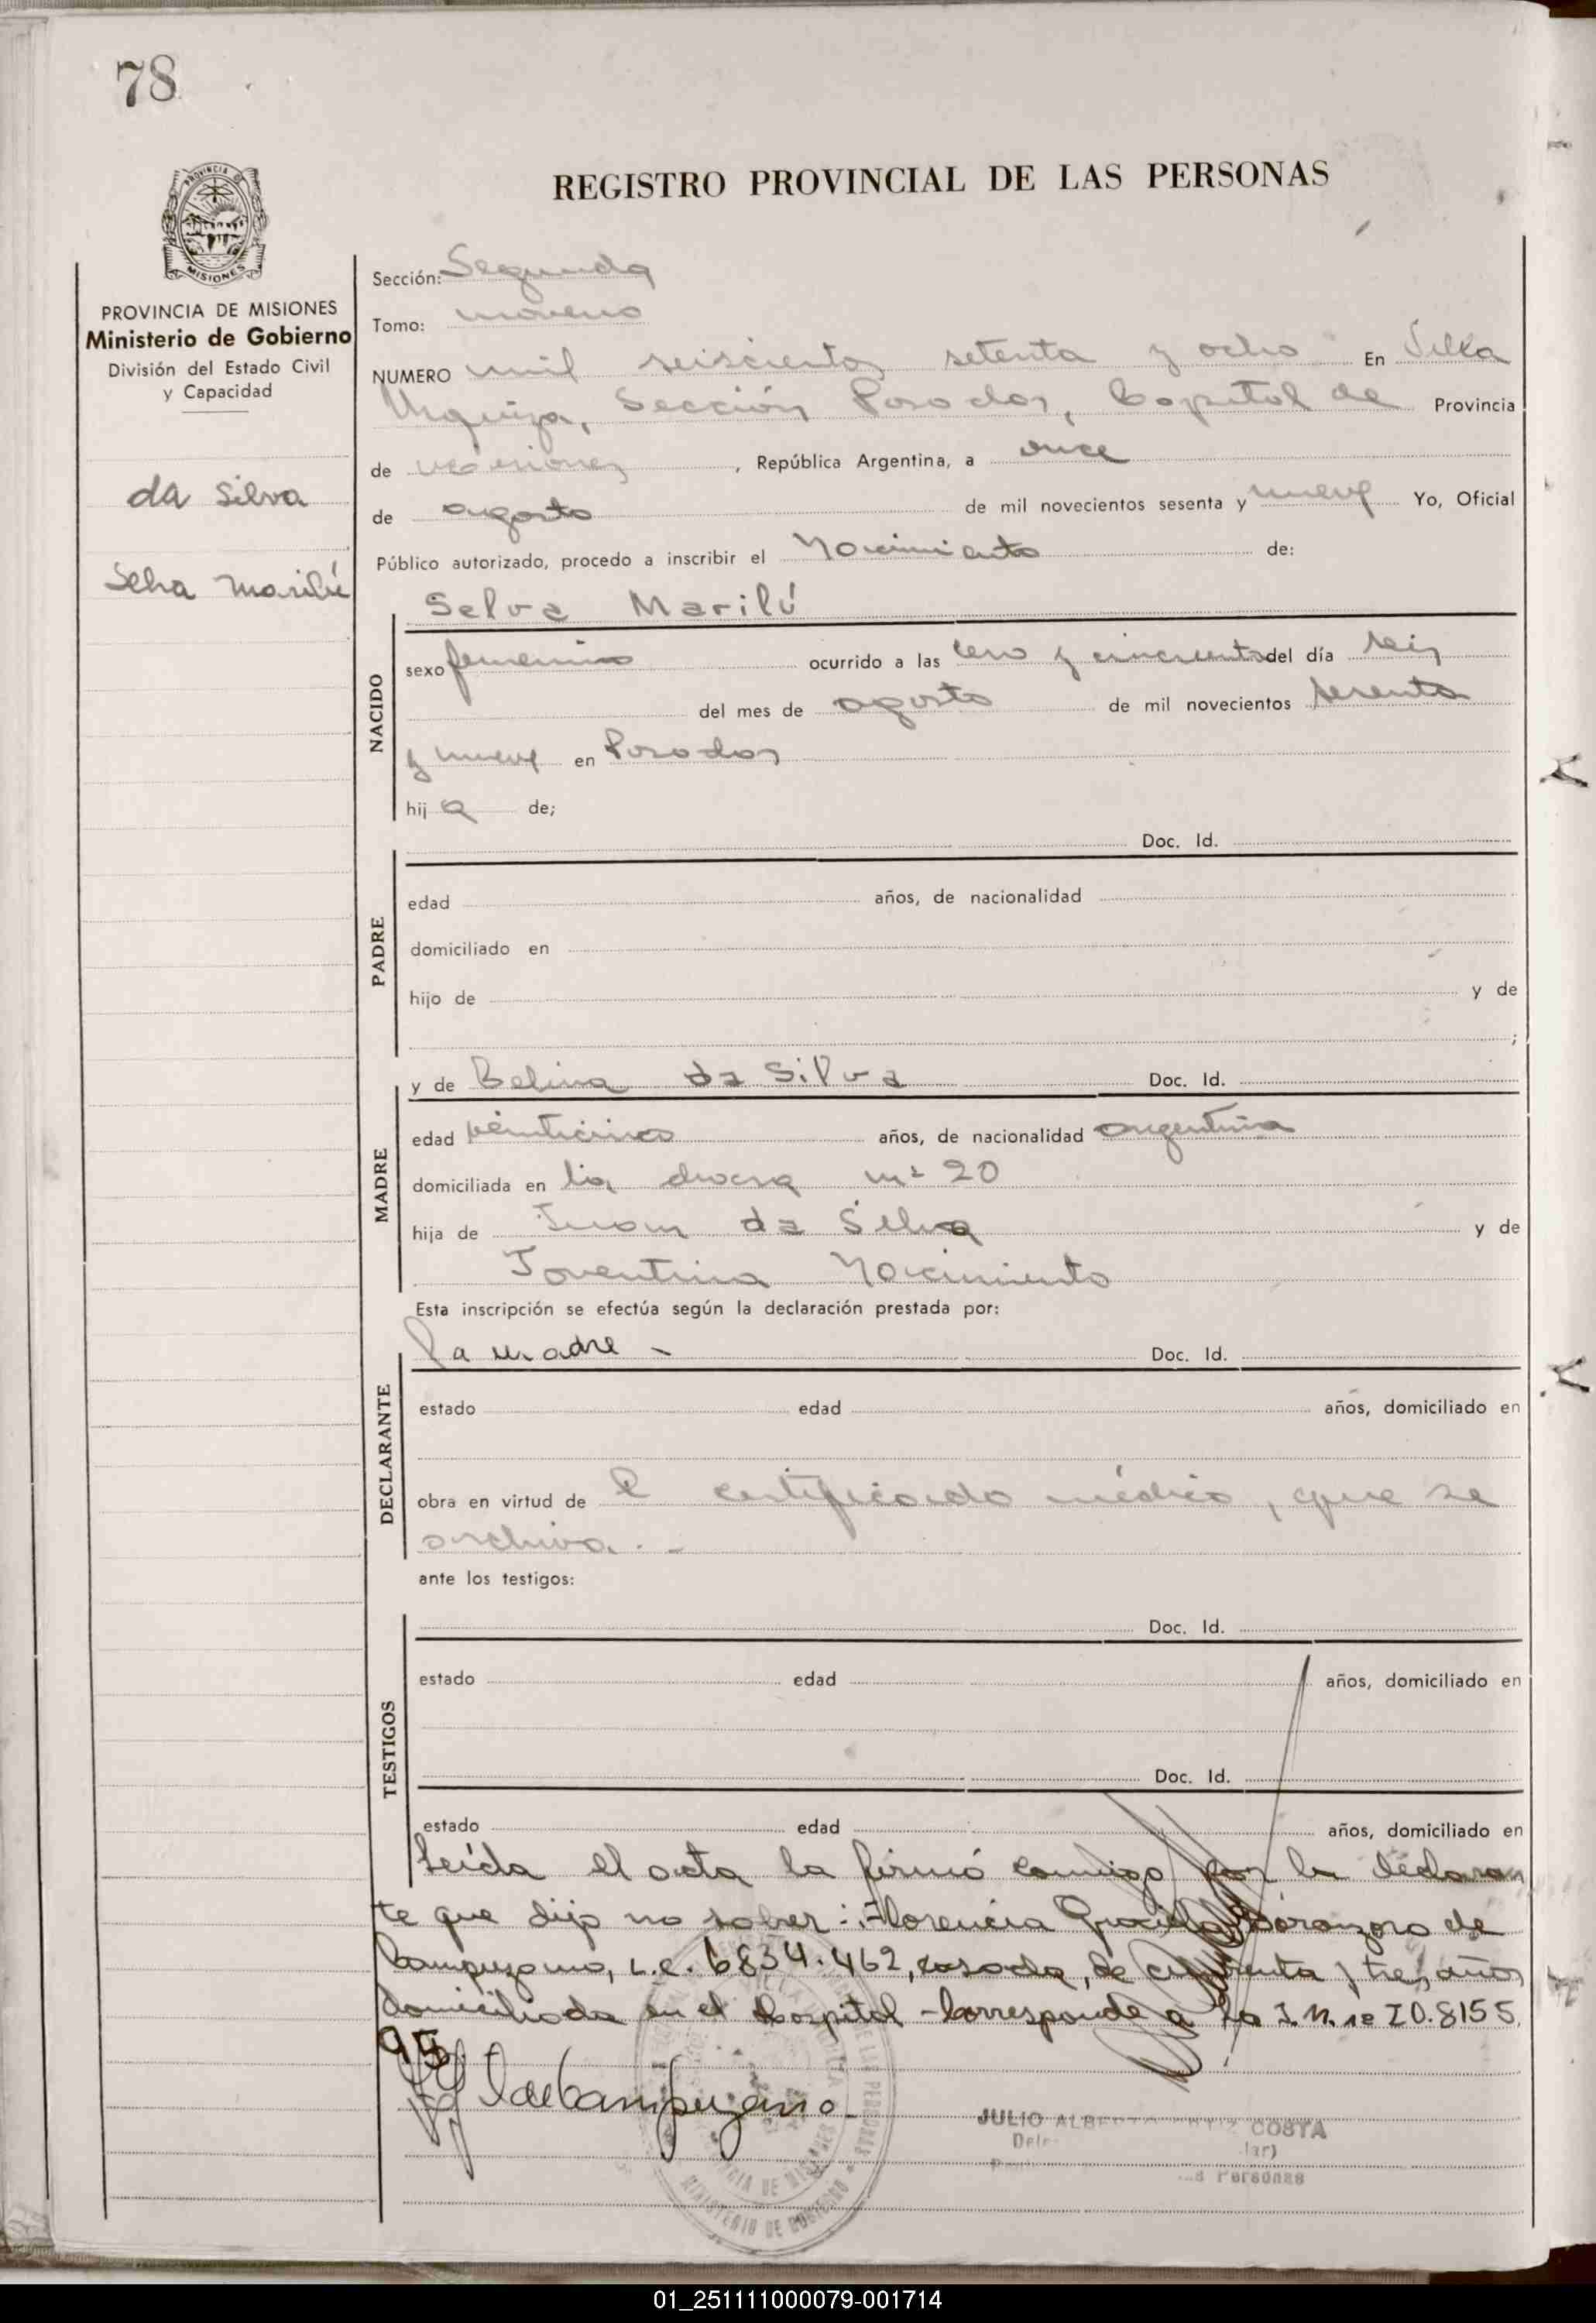 78
REGISTRO PROVINCIAL DE LAS PERSONAS
PROVINCIA DE MISIONES
Ministerio de Gobierno
División del Estado Civil
y Capacidad
da Silva
Selva Marilú
Sección: Segunda
Tomo: noveno
NUMERO mil seiscientos setenta y ocho En Villa
Urquiza, Sección Posadas, Capital de Provincia
de Misiones, República Argentina, a once
de agosto de mil novecientos sesenta y nueve Yo, Oficial
Público autorizado, procedo a inscribir el Nacimiento de:
NACIDO
Selva Marilú
sexo femenino ocurrido a las cero y cincuenta del día seis
del mes de agosto de mil novecientos sesenta
y nueve en Posadas
hija de;
PADRE
Doc. Id.
edad años, de nacionalidad
domiciliado en
hijo de y de
;
MADRE
y de Belina da Silva Doc. Id.
edad veinticinco años, de nacionalidad argentina
domiciliada en la chacra nº 20
hija de Juan da Silva y de
Joventina Nacimiento
Esta inscripción se efectúa según la declaración prestada por:
DECLARANTE
la madre - Doc. Id.
estado edad años, domiciliado en
obra en virtud de l certificado médico, que se
archiva. -
ante los testigos:
TESTIGOS
Doc. Id.
estado edad años, domiciliado en
Doc. Id.
estado edad años, domiciliado en
Leída el acta la firmó conmigo por la declaran
te que dijo no saber: Florencia Graciela de
Campuzano, L.C. 6834.462, casada, de cuarenta y tres años
domiciliada en el Hospital - Corresponde a la I.N. 20.8155
95.
de Campuzano
JULIO ALBERTO COSTA
Personas
PROVINCIA DE MISIONES
MINISTERIO DE GOBIERNO
DE LAS PERSONAS
01_251111000079-001714